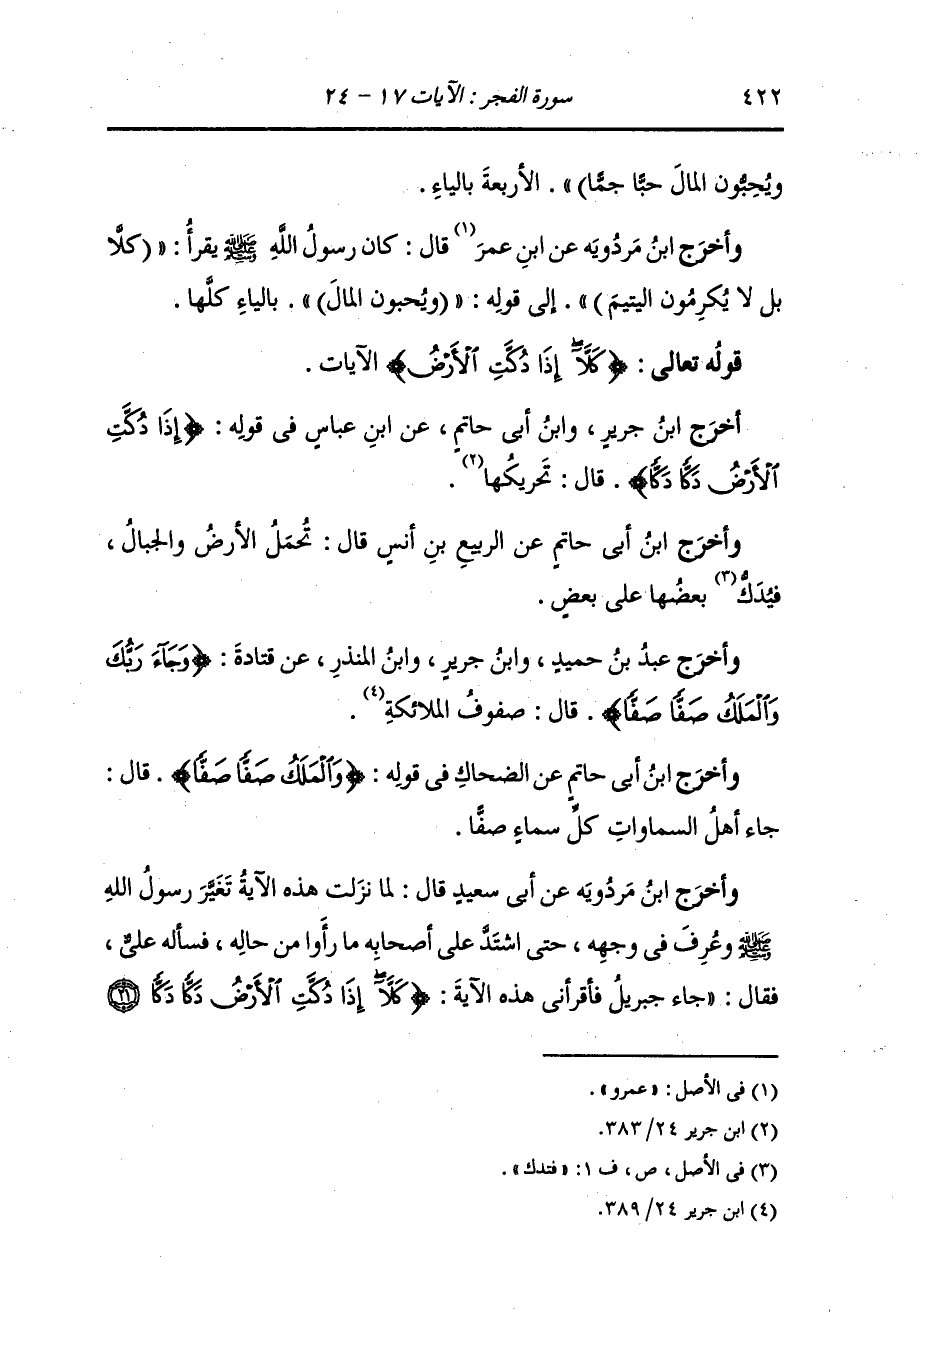 ٤٢٢ سورة الفجر : الآيات ١٧ - ٢٤
ويُحِبُّون المالَ حبًّا جمًّا)» . الأربعةَ بالياءِ .
وأخرَج ابنُ مَردُويَه عن ابنِ عمرَ(١) قال : كان رسولُ اللَّهِ ﷺ يقرأُ : «(كلَّا
بل لا يُكرِمُون اليتيمَ)» . إلى قولِه : «(ويُحبون المالَ)» . بالياءِ كلَّها .
قولُه تعالى : ﴿كَلَّآۖ إِذَا دُكَّتِ ٱلْأَرْضُ﴾ الآيات .
أخرَج ابنُ جريرٍ ، وابنُ أبى حاتمٍ ، عن ابنِ عباسٍ فى قولِه : ﴿إِذَا دُكَّتِ
ٱلْأَرْضُ دَكًّا دَكًّا﴾ . قال : تَحريكُها(٢) .
وأخرَج ابنُ أبى حاتمٍ عن الربيعِ بنِ أنسٍ قال : تُحمَلُ الأرضُ والجبالُ ،
فيُدَكُّ(٣) بعضُها على بعضٍ .
وأخرَج عبدُ بنُ حميدٍ ، وابنُ جريرٍ ، وابنُ المنذرِ ، عن قتادةَ : ﴿وَجَآءَ رَبُّكَ
وَٱلْمَلَكُ صَفًّا صَفًّا﴾ . قال : صفوفُ الملائكةِ(٤) .
وأخرَج ابنُ أبى حاتمٍ عن الضحاكِ فى قولِه : ﴿وَٱلْمَلَكُ صَفًّا صَفًّا﴾ . قال :
جاء أهلُ السماواتِ كلِّ سماءٍ صفًّا .
وأخرَج ابنُ مَردُويَه عن أبى سعيدٍ قال : لما نزَلت هذه الآيةُ تَغَيَّرَ رسولُ اللهِ
ﷺ وعُرِفَ فى وجهِه ، حتى اشتَدَّ على أصحابِه ما رأَوا من حالِه ، فسأله علىٌّ ،
فقال : «جاء جبريلُ فأقرأنى هذه الآيةَ : ﴿كَلَّآۖ إِذَا دُكَّتِ ٱلْأَرْضُ دَكًّا دَكًّا ٢١
(١) فى الأصل : «عمرو» .
(٢) ابن جرير ٢٤/ ٣٨٣.
(٣) فى الأصل ، ص ، ف ١: «فتدك» .
(٤) ابن جرير ٢٤/ ٣٨٩.